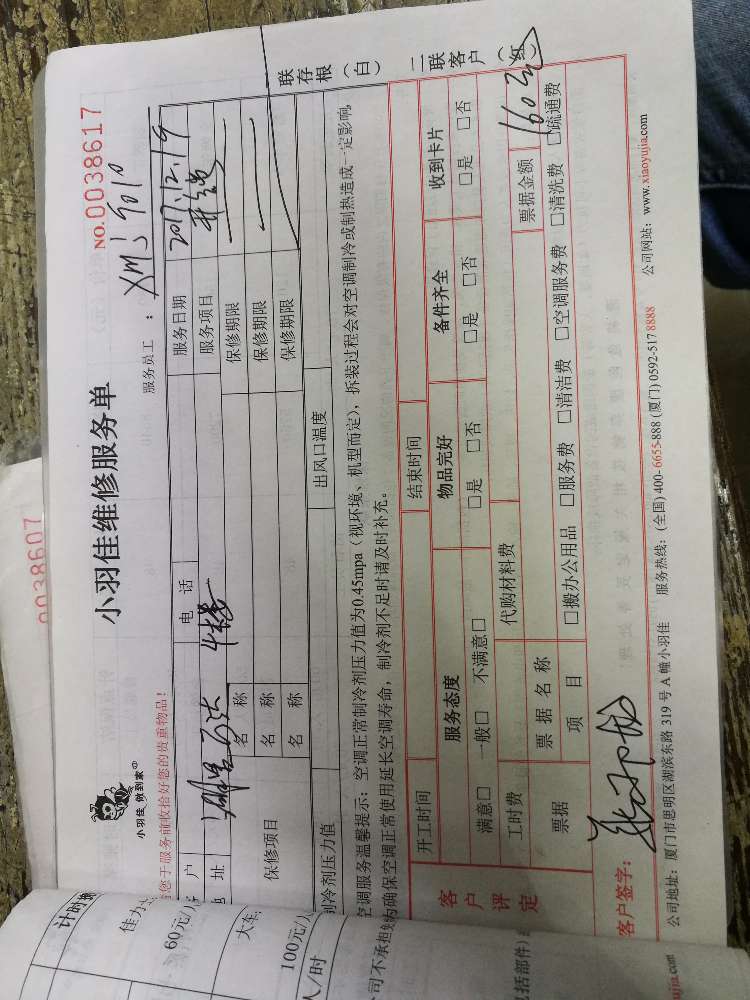 0038607
小羽佳 做到家
小羽佳维修服务单
NO.0038617
您于服务前收拾好您的贵重物品!
服务员工：
户 电 话 服务日期 2017.12.19
址 4楼 服务项目
保修项目 名 称 保修期限
名 称 保修期限
名 称 保修期限
制冷剂压力值 出风口温度
空调服务温馨提示：空调正常制冷剂压力值为0.45mpa（视环境、机型而定），拆装过程会对空调制冷或制热造成一定影响，
为确保空调正常使用延长空调寿命，制冷剂不足时请及时补充。
联存根（白）
二联客户（红）
开工时间 结束时间
客户评定
服务态度 物品完好 备件齐全 收到卡片
满意□ 一般□ 不满意□ □是 □否 □是 □否 □是 □否
工时费 代购材料费 票据金额 160元
票据 票 据 名 称
项 目 □搬办公用品 □服务费 □清洁费 □空调服务费 □清洗费 □疏通费
客户签字：
公司地址：厦门市思明区湖滨东路 319 号 A 幢小羽佳 服务热线：(全国) 400-6655-888 (厦门) 0592-517 8888 公司网站：www.xiaoyujia.com
佳力
60元/
大车
100元/
人/时
司不承担
包括部件)